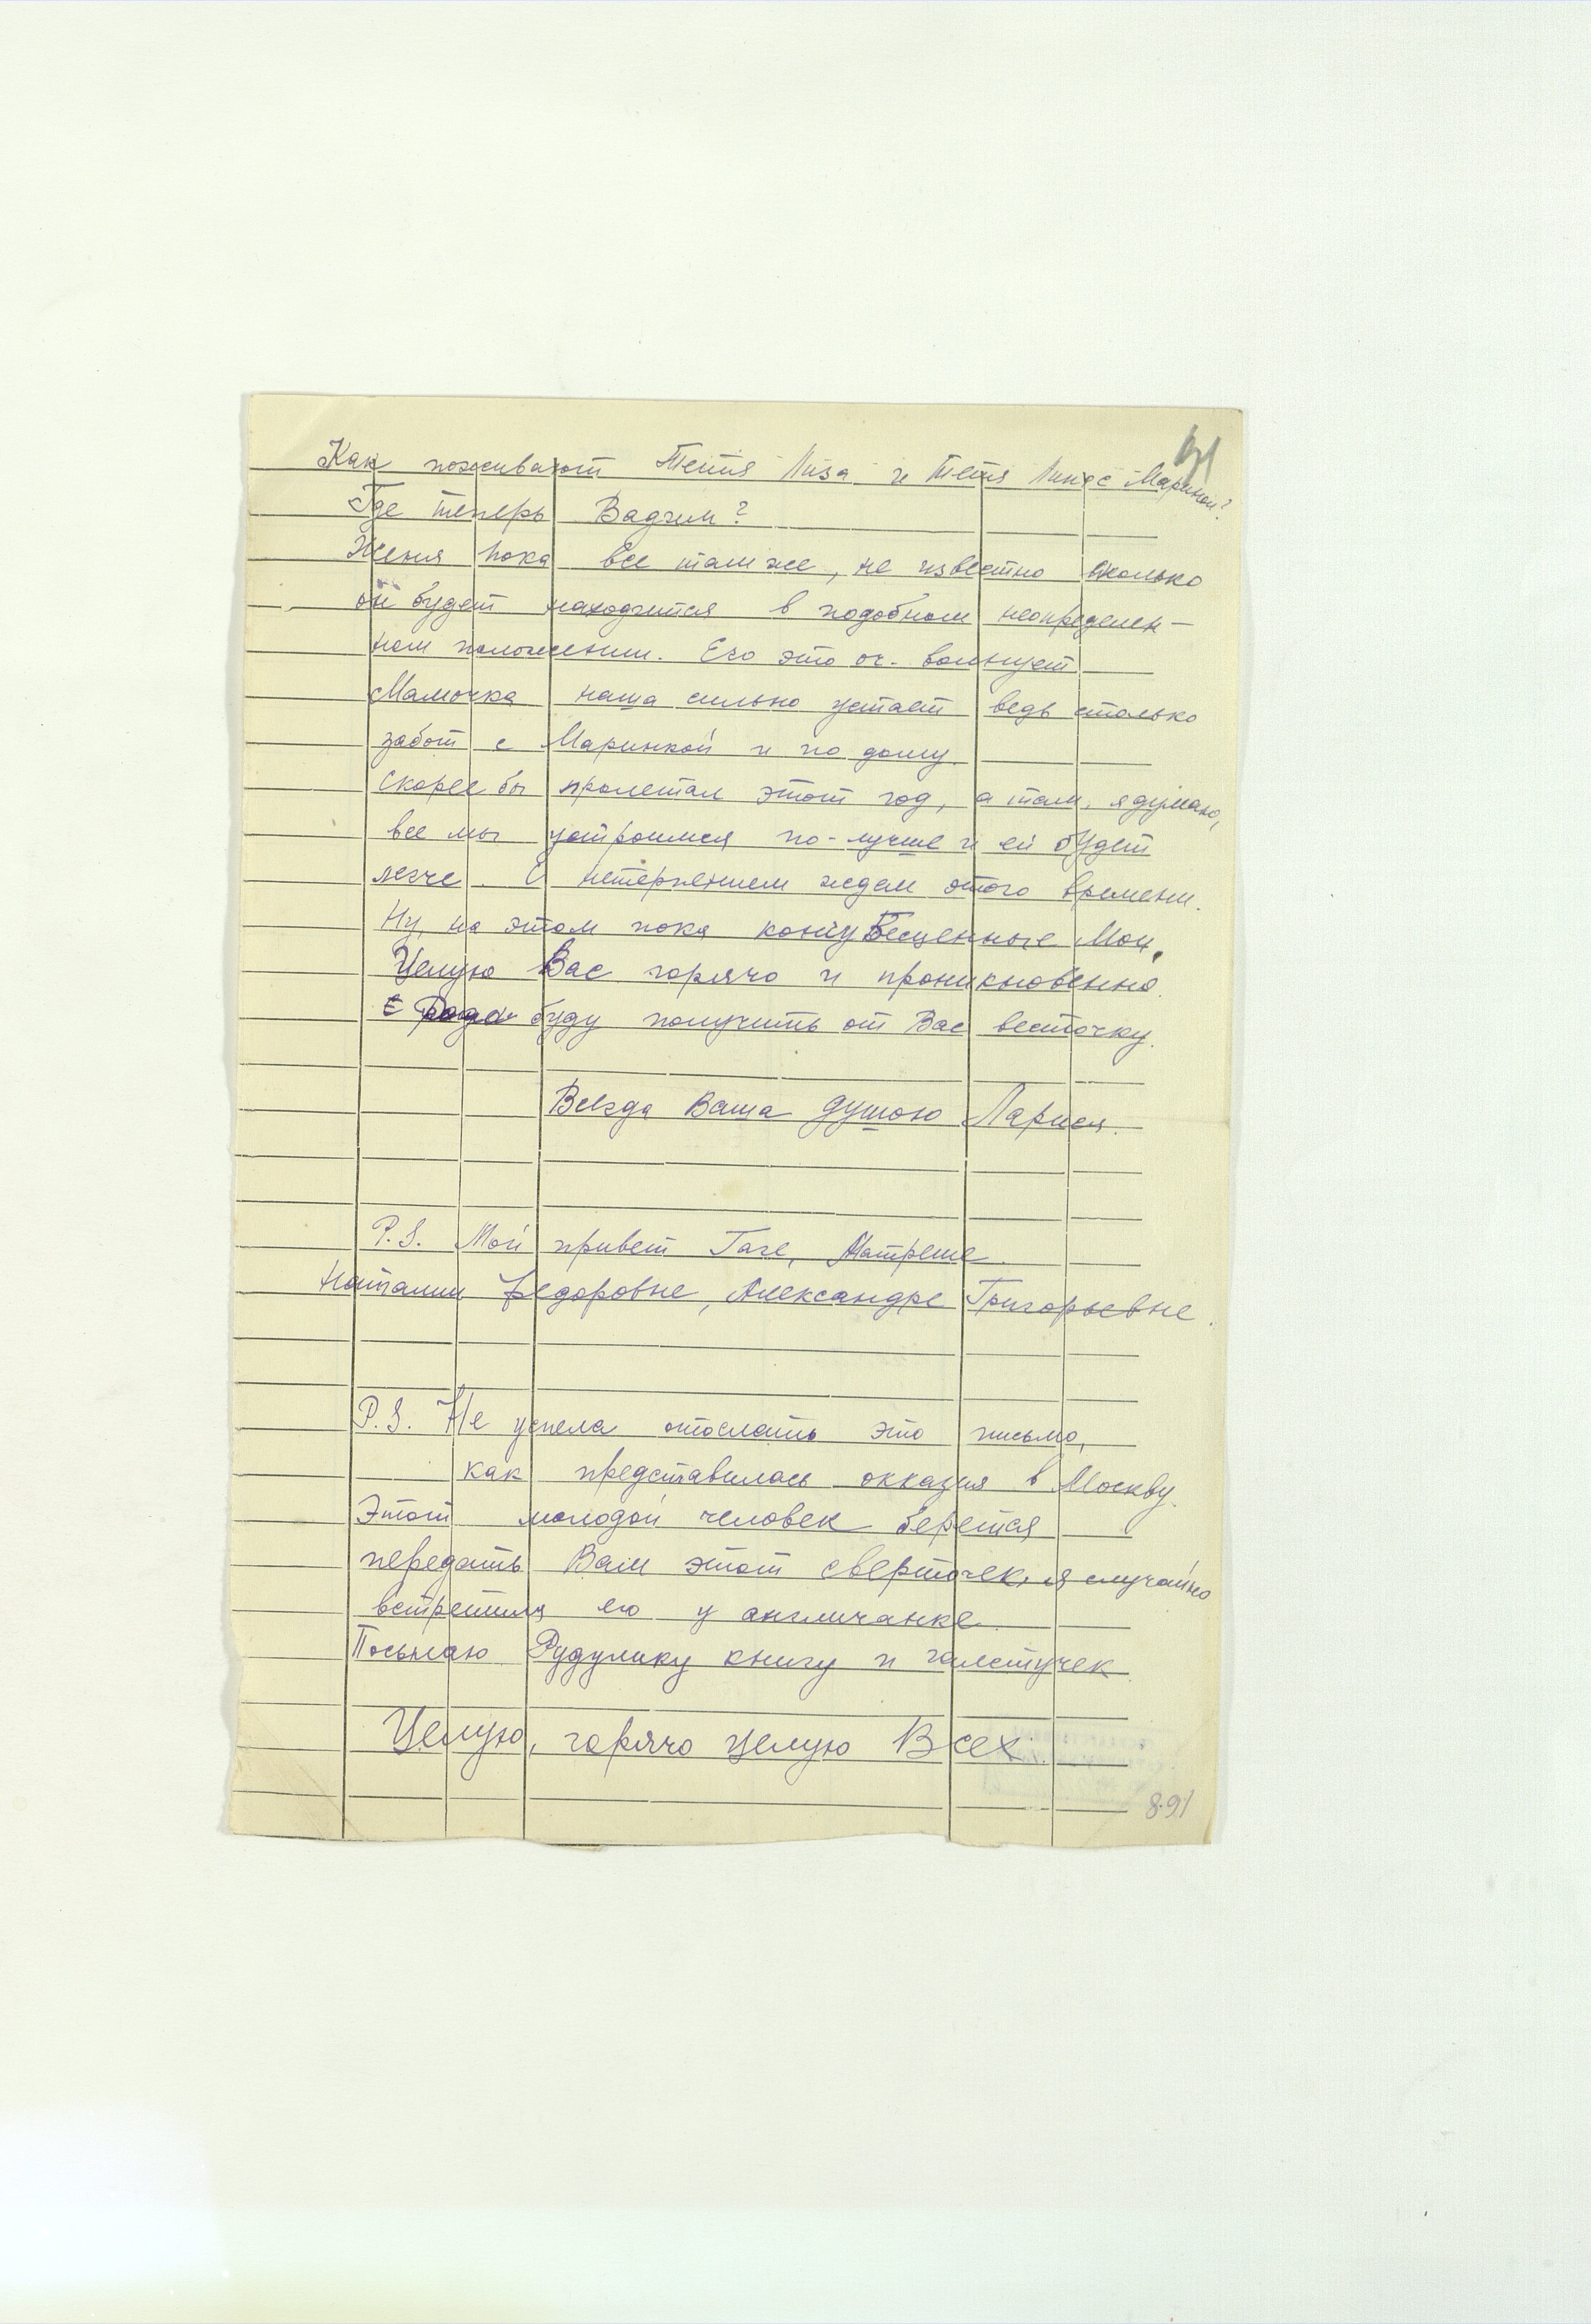 Как поживают Тетя Лиза и Тетя Лина с Мариной?
Где теперь Вадим?
Женя пока все там же, не известно сколько
он будет находится в подобном неопределен-
ном положении. Его это оч. волнует
Мамочка наша сильно устает ведь столько
забот с Маринкой и по дому.
Скорее бы пролетал этот год, а там, я думаю,
все мы устроимся по-лучше и ей будет
легче. С нетерпением ждем этого времени.
Ну, на этом пока кончу Бесценные Мои.
Целую Вас горячо и проникновенно.
Рада буду получить от Вас весточку.
Всегда Ваша душою Лариса.
P.S. Мой привет Гаге, Матреше
Наталии Федоровне, Александре Григорьевне.
P.S. Не успела отослать это письмо,
как представилась оказия в Москву.
Этот молодой человек берется
передать Вам этот сверточек, я случайно
встретила его у англичанке.
Посылаю Рудулику книгу и галстучек
Целую, горячо целую Всех.
891